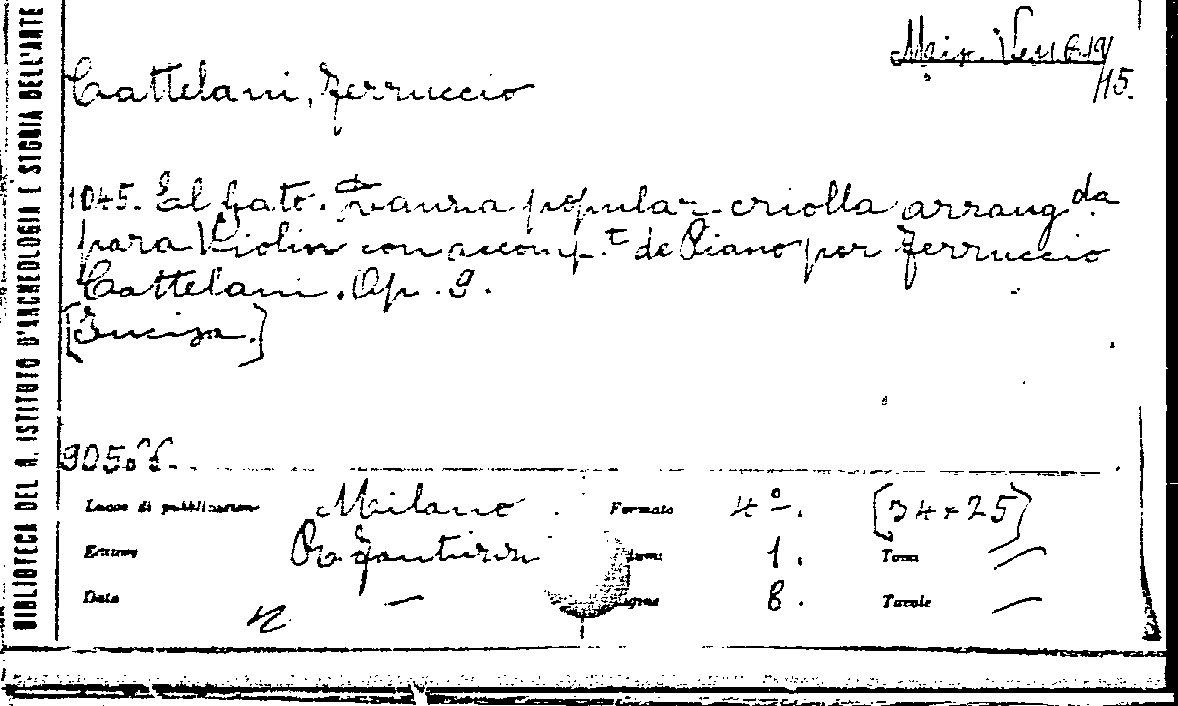 BIBLIOTECA DEL R. ISTITUTO D'ARCHEOLOGIA E STORIA DELL'ARTE
15.
Cattelani, Ferruccio
1045. El Gato. Danza popular criolla arrang.da
para Violin con accomp.to de Piano por Ferruccio
Cattelani. Op. 9.
[Incisa.]
Luogo di pubblicazione Milano. Formato 4º. [34×25]
Editore 1. Tomi —
Data — Pagine 8. Tavole —